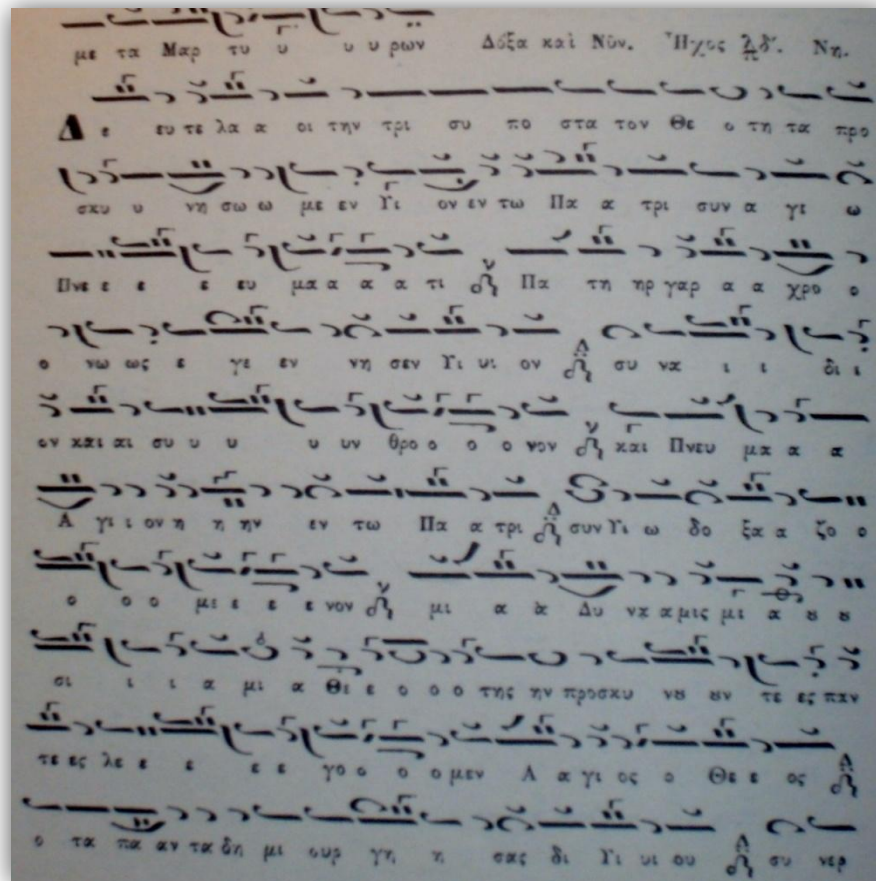 με τα Μαρ τυ υ υ υ ρων Δόξα καὶ Νῦν. Ἦχος πλ. δ'. Νη.
Δ ε ευ τε λα α οι την τρι συ πο στα τον Θε ο τη τα προ
σκυ υ νη σω ω με εν Υι ον εν τω Πα α τρι συν α γι ω
Πνε ε ε ε ευ μα α α α τι Πα τη ηρ γαρ α α χρο ο
ο νω ως ε γε εν νη σεν Υι υι ον συ να ι ι δι ι
ον και αι συ υ υ υ υν θρο ο ο ο νον και Πνευ μα α α
Α γι ι ον η η ην εν τω Πα α τρι συν Υι ω δο ξα α ζο ο
ο ο ο μι ε ε ε νον μι α α Δυ να α μις μι α ȣ ȣ
σι ι ι α μι α Θε ε ο ο ο της ην προσκυ νȣ ȣν τε ες παν
τε ες λε ε ε ε ε γο ο ο ο μεν Α α γι ος ο Θε ε ος
ο τα πα αν τα δη μι ουρ γη η σας δι Υι υι ου συ νερ